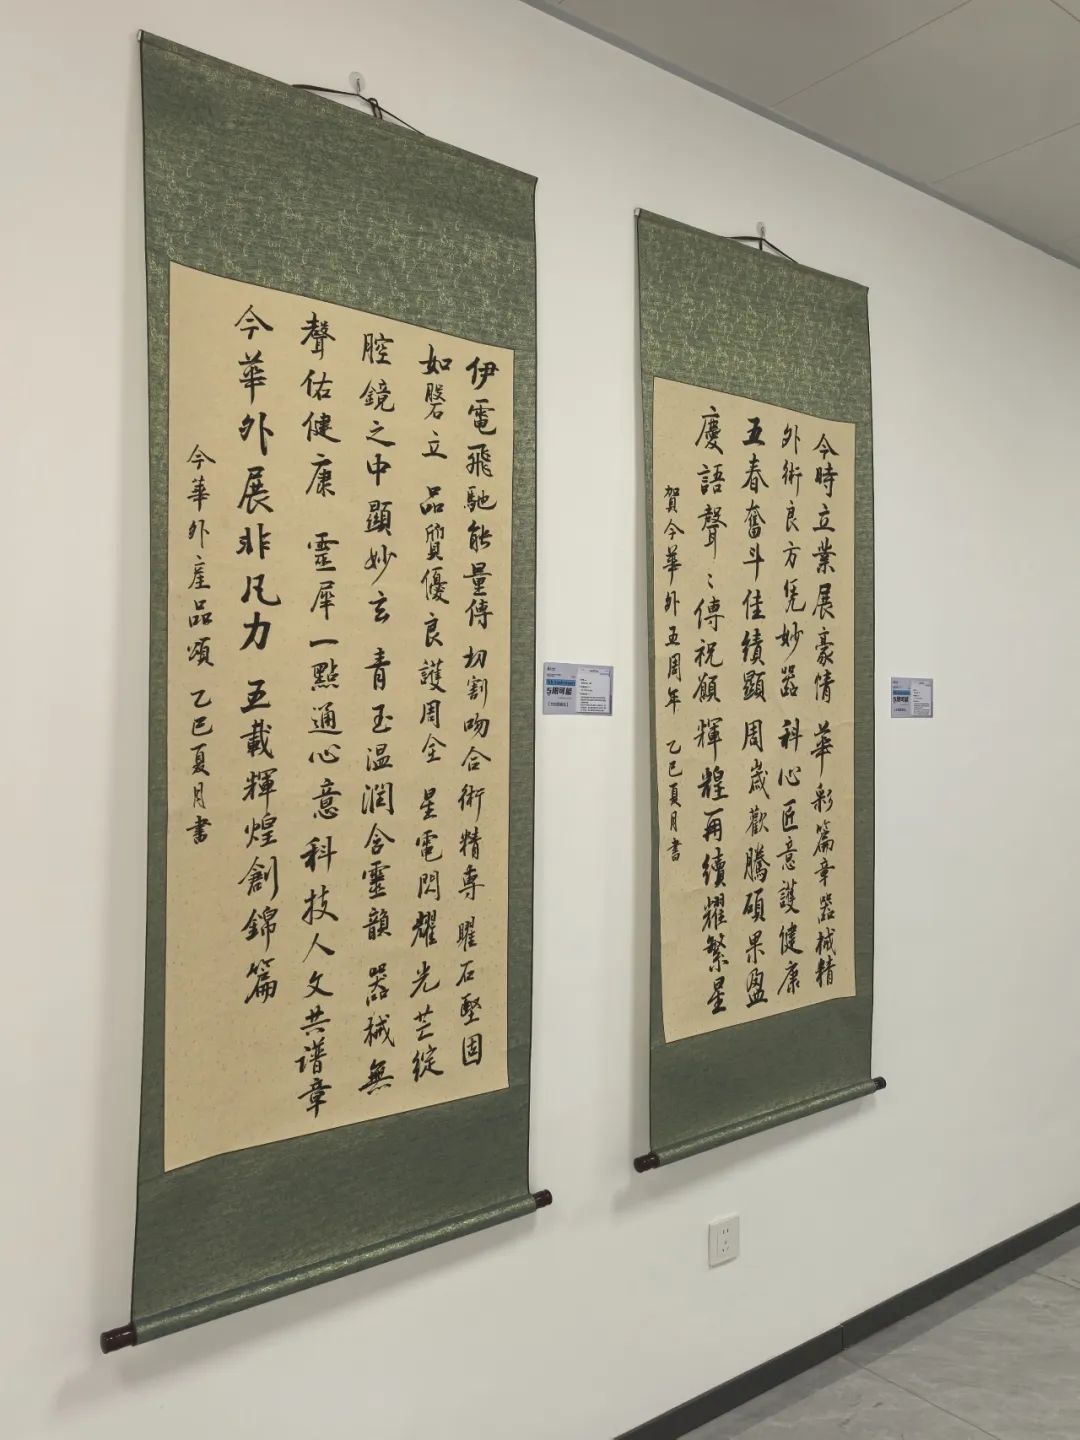 伊電飛馳能量傳 切割吻合術精專 曜石堅固
如磐立 品質優良護周全 星電閃耀光芒綻
腔鏡之中顯妙玄 青玉温潤含靈韻 器械無
聲佑健康 靈犀一點通心意 科技人文共譜章
今華外展非凡力 五載輝煌創錦篇
今華外產品頌 乙巳夏月書
今時立業展豪情 華彩篇章器械精
外術良方凭妙器 科心匠意護健康
五春奮斗佳績顯 周歲歡騰碩果盈
慶語聲〻傳祝願 輝煌再續耀繁星
賀今華外五周年 乙巳夏月書